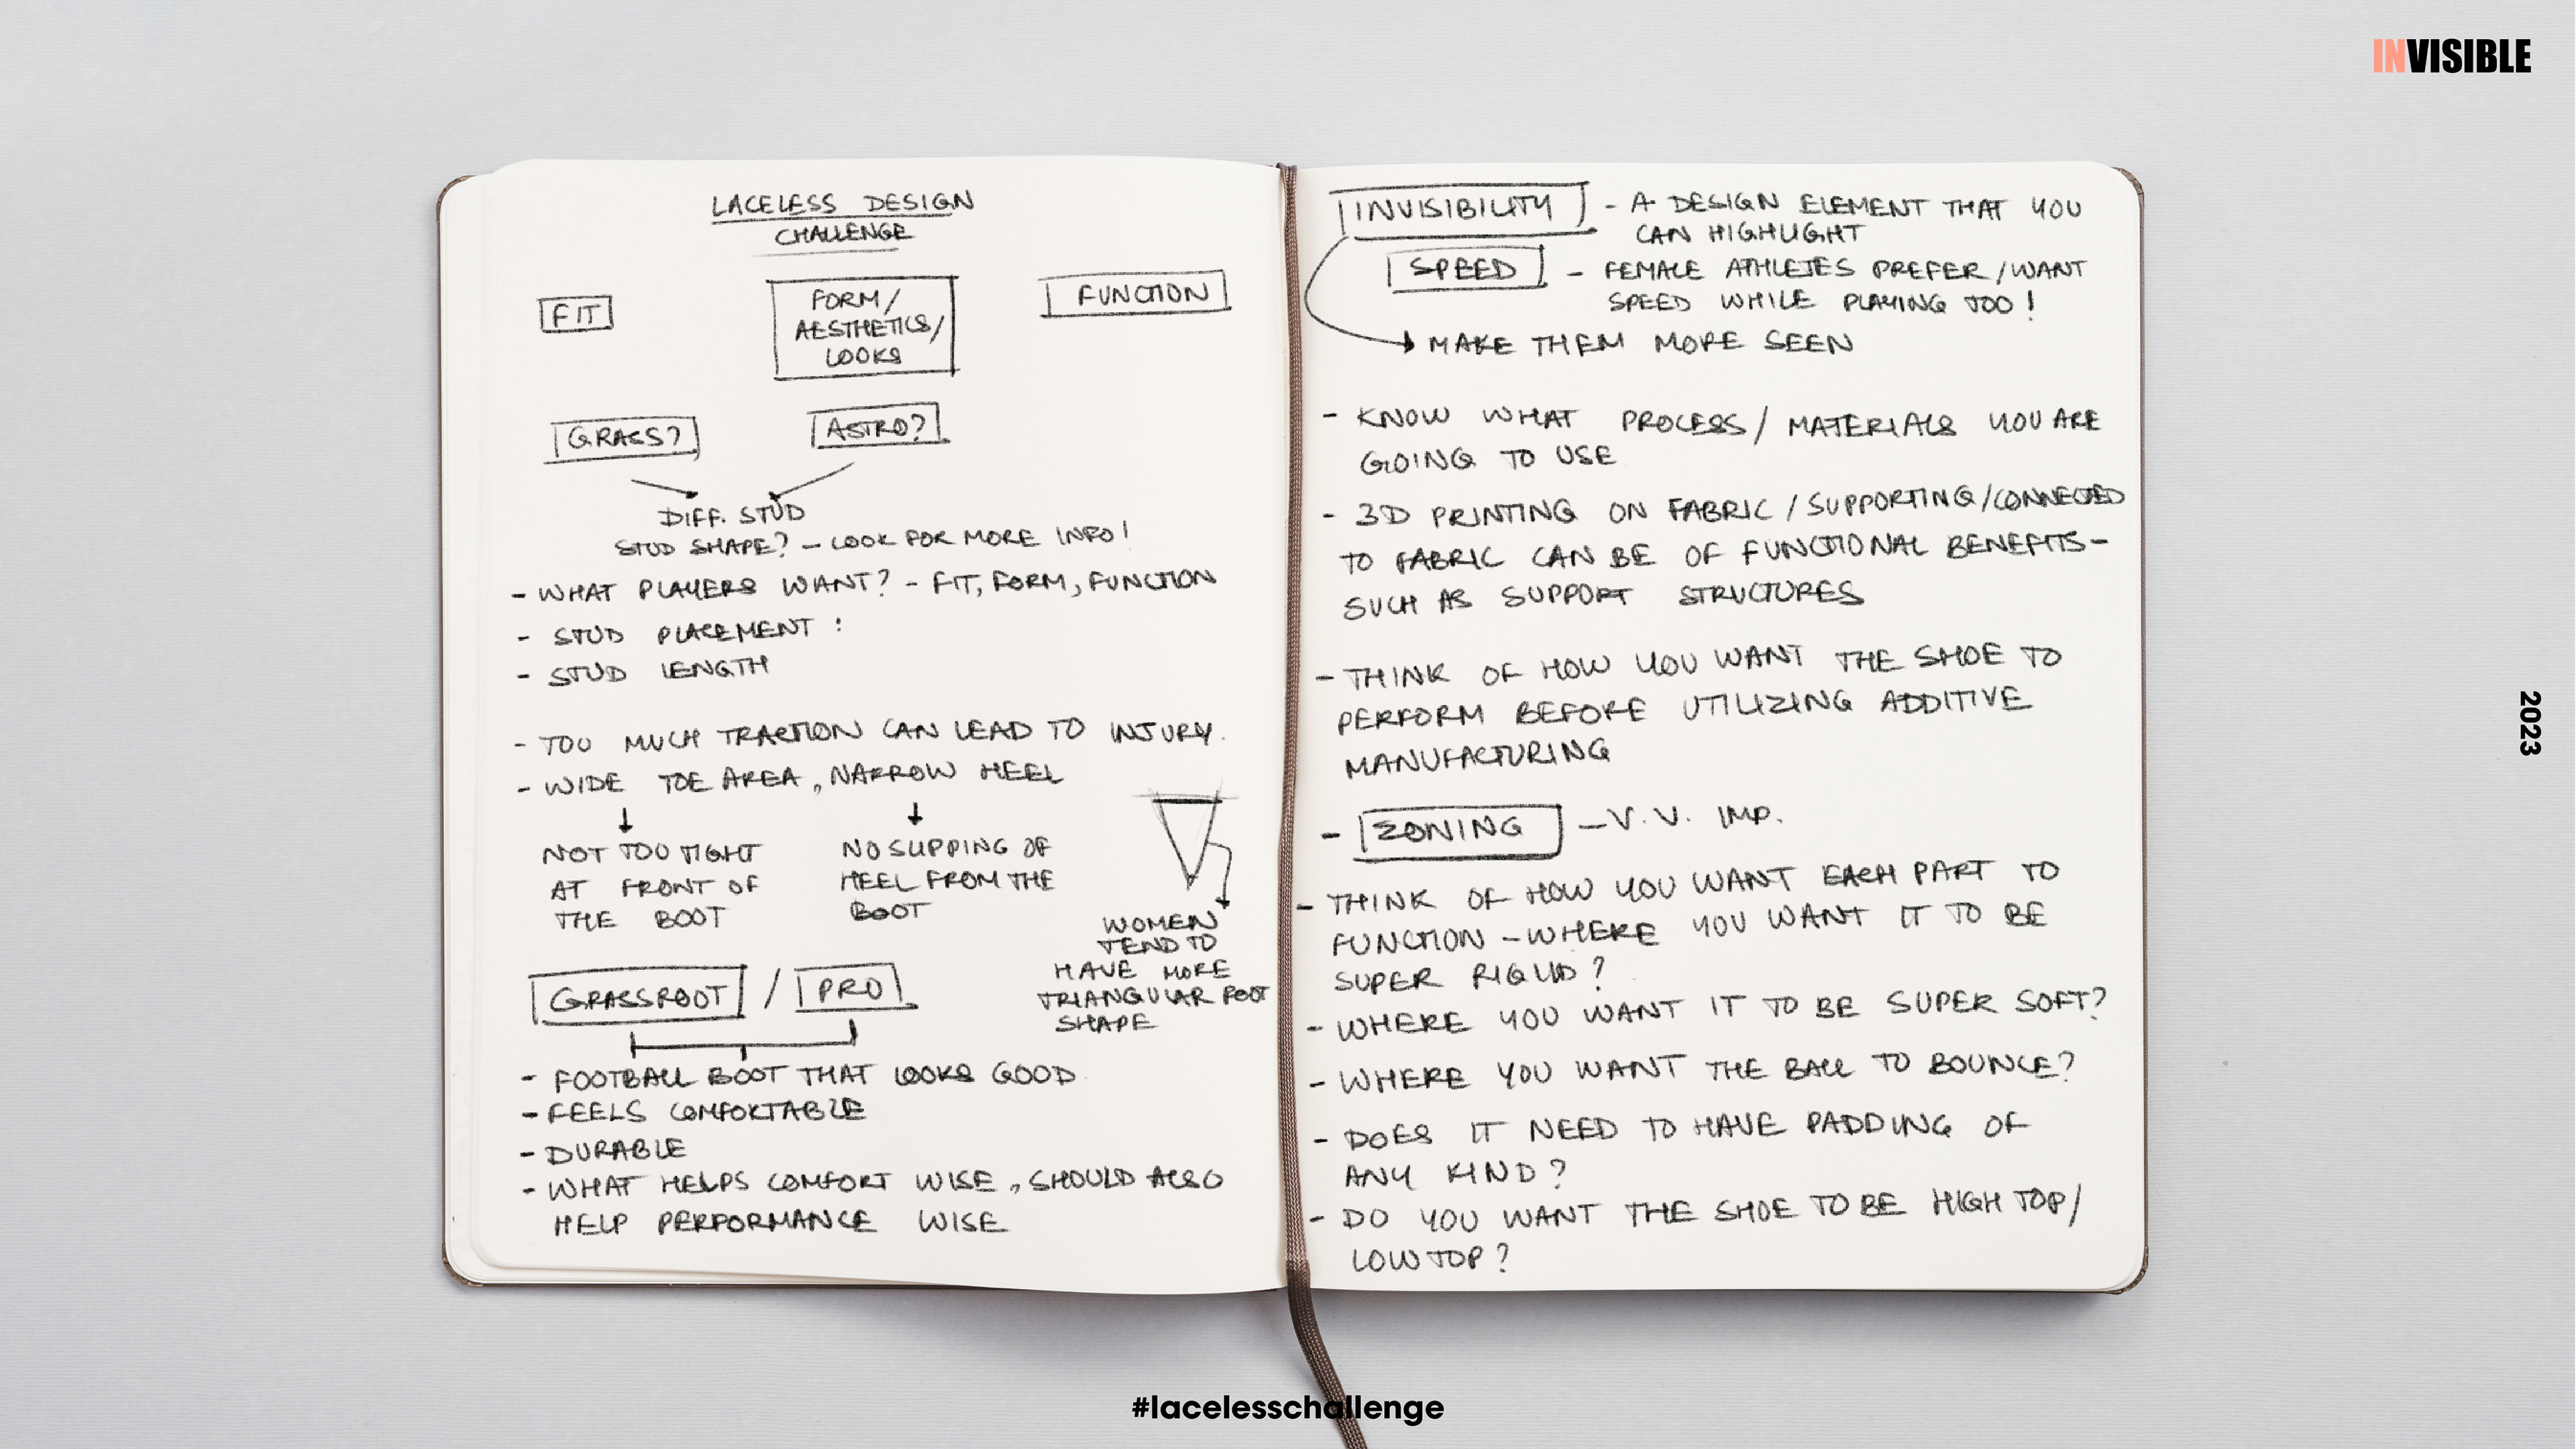 INVISIBLE
LACELESS DESIGN
CHALLENGE
FIT
FORM/
AESTHETICS/
LOOKS
FUNCTION
GRASS?
ASTRO?
DIFF. STUD
STUD SHAPE? - LOOK FOR MORE INFO!
- WHAT PLAYERS WANT? - FIT, FORM, FUNCTION
- STUD PLACEMENT :
- STUD LENGTH
- TOO MUCH TRACTION CAN LEAD TO INJURY.
- WIDE TOE AREA, NARROW HEEL
NOT TOO TIGHT
AT FRONT OF
THE BOOT
NO SLIPPING OF
HEEL FROM THE
BOOT
WOMEN
TEND TO
HAVE MORE
TRIANGULAR FOOT
SHAPE
GRASSROOT / PRO
- FOOTBALL BOOT THAT LOOKS GOOD
- FEELS COMFORTABLE
- DURABLE
- WHAT HELPS COMFORT WISE, SHOULD ALSO
HELP PERFORMANCE WISE
INVISIBILITY - A DESIGN ELEMENT THAT YOU
CAN HIGHLIGHT
SPEED - FEMALE ATHLETES PREFER/WANT
SPEED WHILE PLAYING TOO!
MAKE THEM MORE SEEN
- KNOW WHAT PROCESS/ MATERIALS YOU ARE
GOING TO USE
- 3D PRINTING ON FABRIC/SUPPORTING/CONNECTED
TO FABRIC CAN BE OF FUNCTIONAL BENEFITS-
SUCH AS SUPPORT STRUCTURES
- THINK OF HOW YOU WANT THE SHOE TO
PERFORM BEFORE UTILIZING ADDITIVE
MANUFACTURING
- ZONING - V.V. IMP.
- THINK OF HOW YOU WANT EACH PART TO
FUNCTION - WHERE YOU WANT IT TO BE
SUPER RIGID?
- WHERE YOU WANT IT TO BE SUPER SOFT?
- WHERE YOU WANT THE BALL TO BOUNCE?
- DOES IT NEED TO HAVE PADDING OF
ANY KIND?
- DO YOU WANT THE SHOE TO BE HIGH TOP/
LOW TOP?
2023
#lacelesschallenge